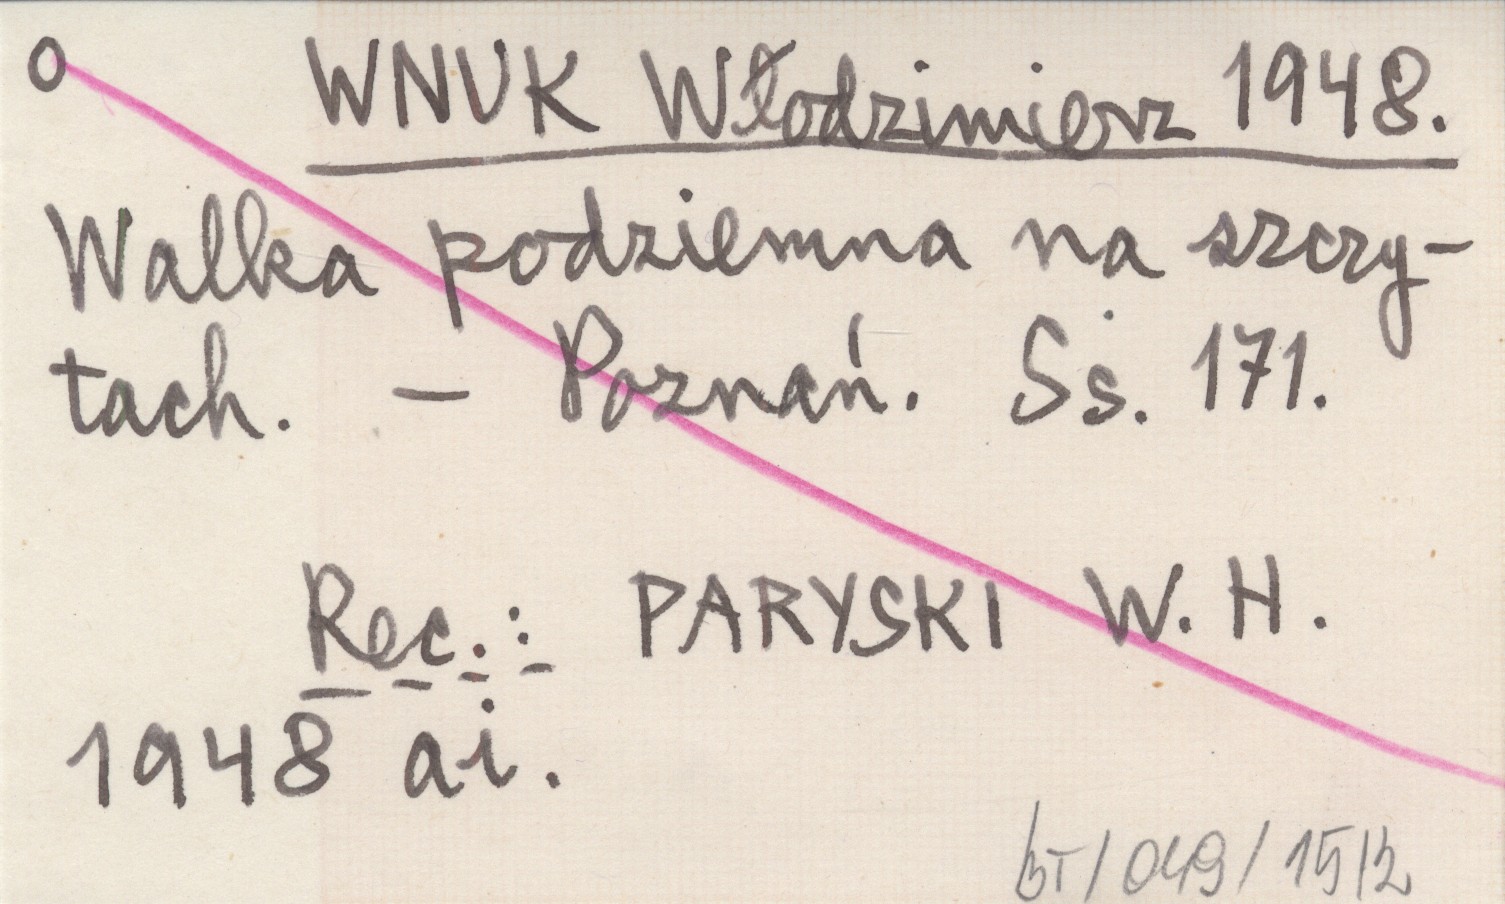 O WNUK Włodzimierz 1948.
Walka podziemna na szczy-
tach. – Poznań. Ss. 171.
Rec.: PARYSKI W. H.
1948 ai.
BT/049/1512